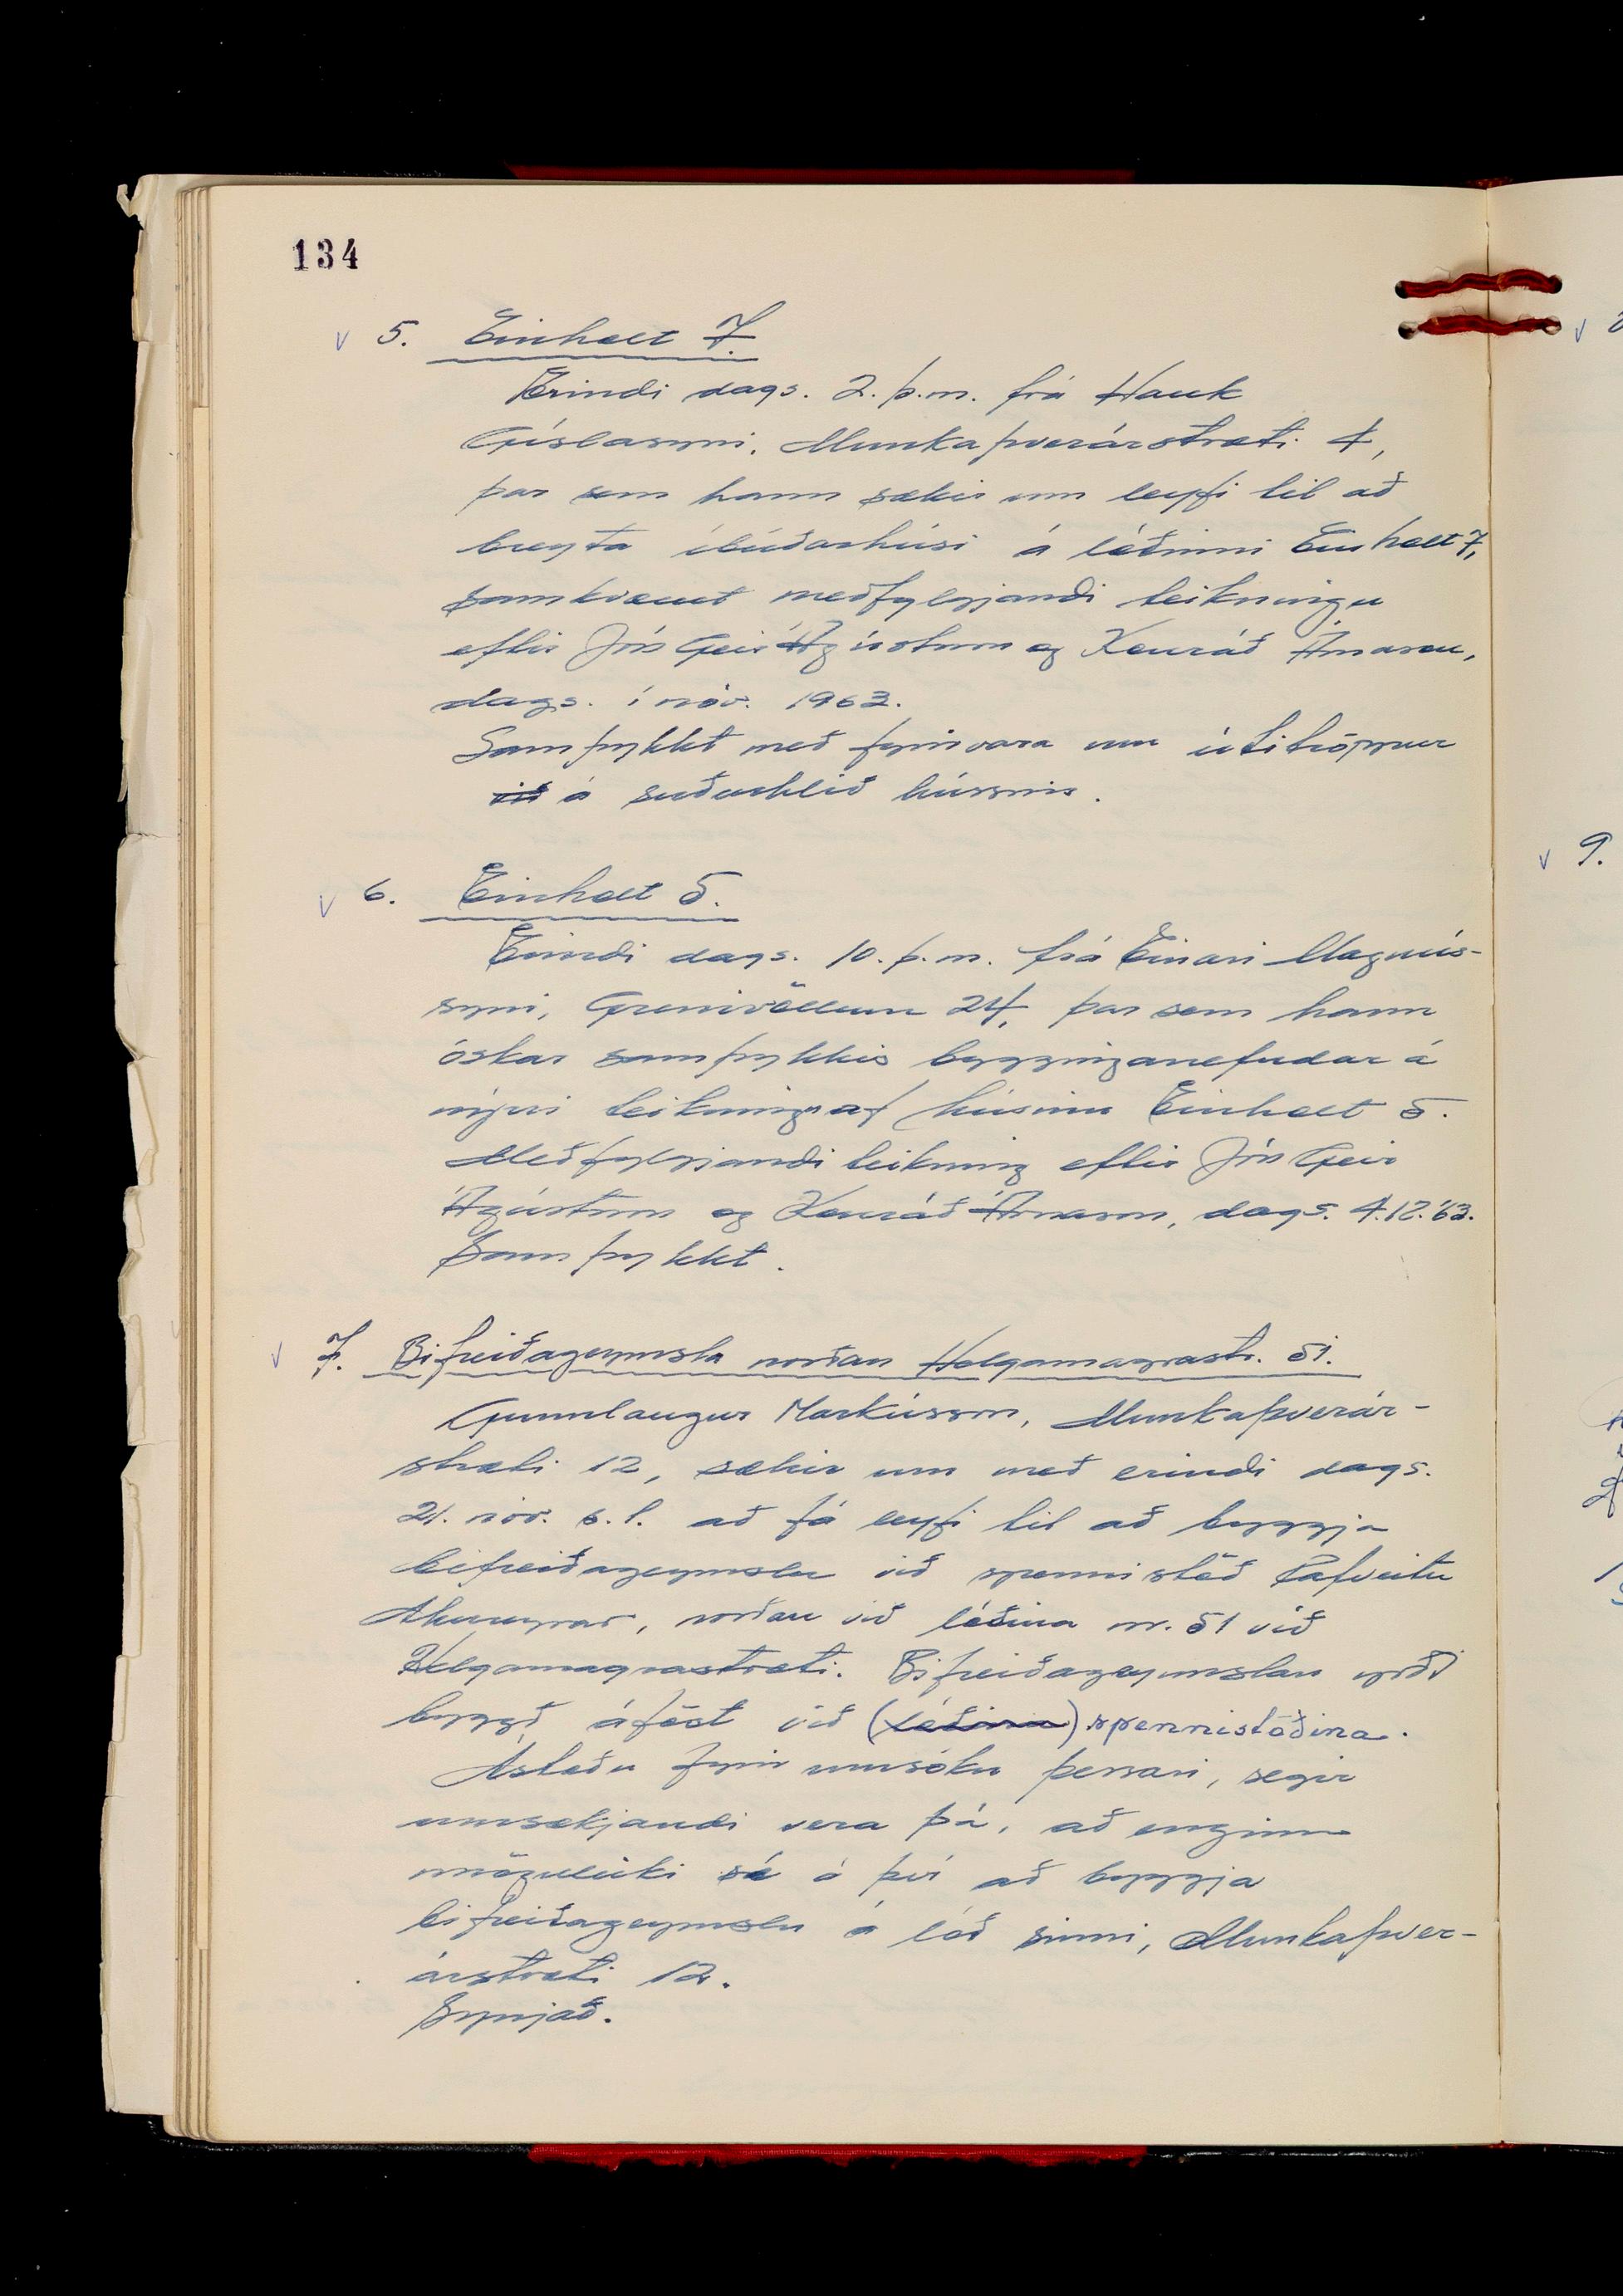 134
v 5. Einholt 7.
Erindi dags. 2. þ.m. frá Hauk
Gíslasyni, Munkaþverárstræti 4,
þar sem hann sækir um leyfi til að
breyta íbúðarhúsi á lóðinni Einholt 7,
samkvæmt meðfylgjandi teikningu
eftir Jón Geir Ágústsson og Konráð Árnason,
dags. í nóv. 1963.
Samþykkt með fyrirvara um útitröppur
við á suðurhlið hússins.
v 6. Einholt 5.
Erindi dags. 10. þ.m. frá Einari Magnús-
syni, Grenivöllum 24, þar sem hann
óskar samþykkis bygginganefndar á
nýrri teikningu af húsinu Einholt 5.
Meðfylgjandi teikning eftir Jón Geir
Ágústsson og Konráð Árnason, dags. 4.12.'63.
Samþykkt.
v 7. Bifreiðageymsla norðan Helgamagrastr. 51.
Gunnlaugur Markússon, Munkaþverár-
stræti 12, sækir um með erindi dags.
21. nóv. s.l. að fá leyfi til að byggja
bifreiðageymslu við spennistöð Rafveitu
Akureyrar, norðan við lóðina nr. 51 við
Helgamagrastræti. Bifreiðageymslan yrði
byggð áföst við (lóðina) spennistöðina.
Ástæðu fyrir umsókn þessari, segir
umsækjandi vera þá, að enginn
möguleiki sé á því að byggja
bifreiðageymslu á lóð sinni, Munkaþver-
árstræti 12.
Synjað.
v 9.